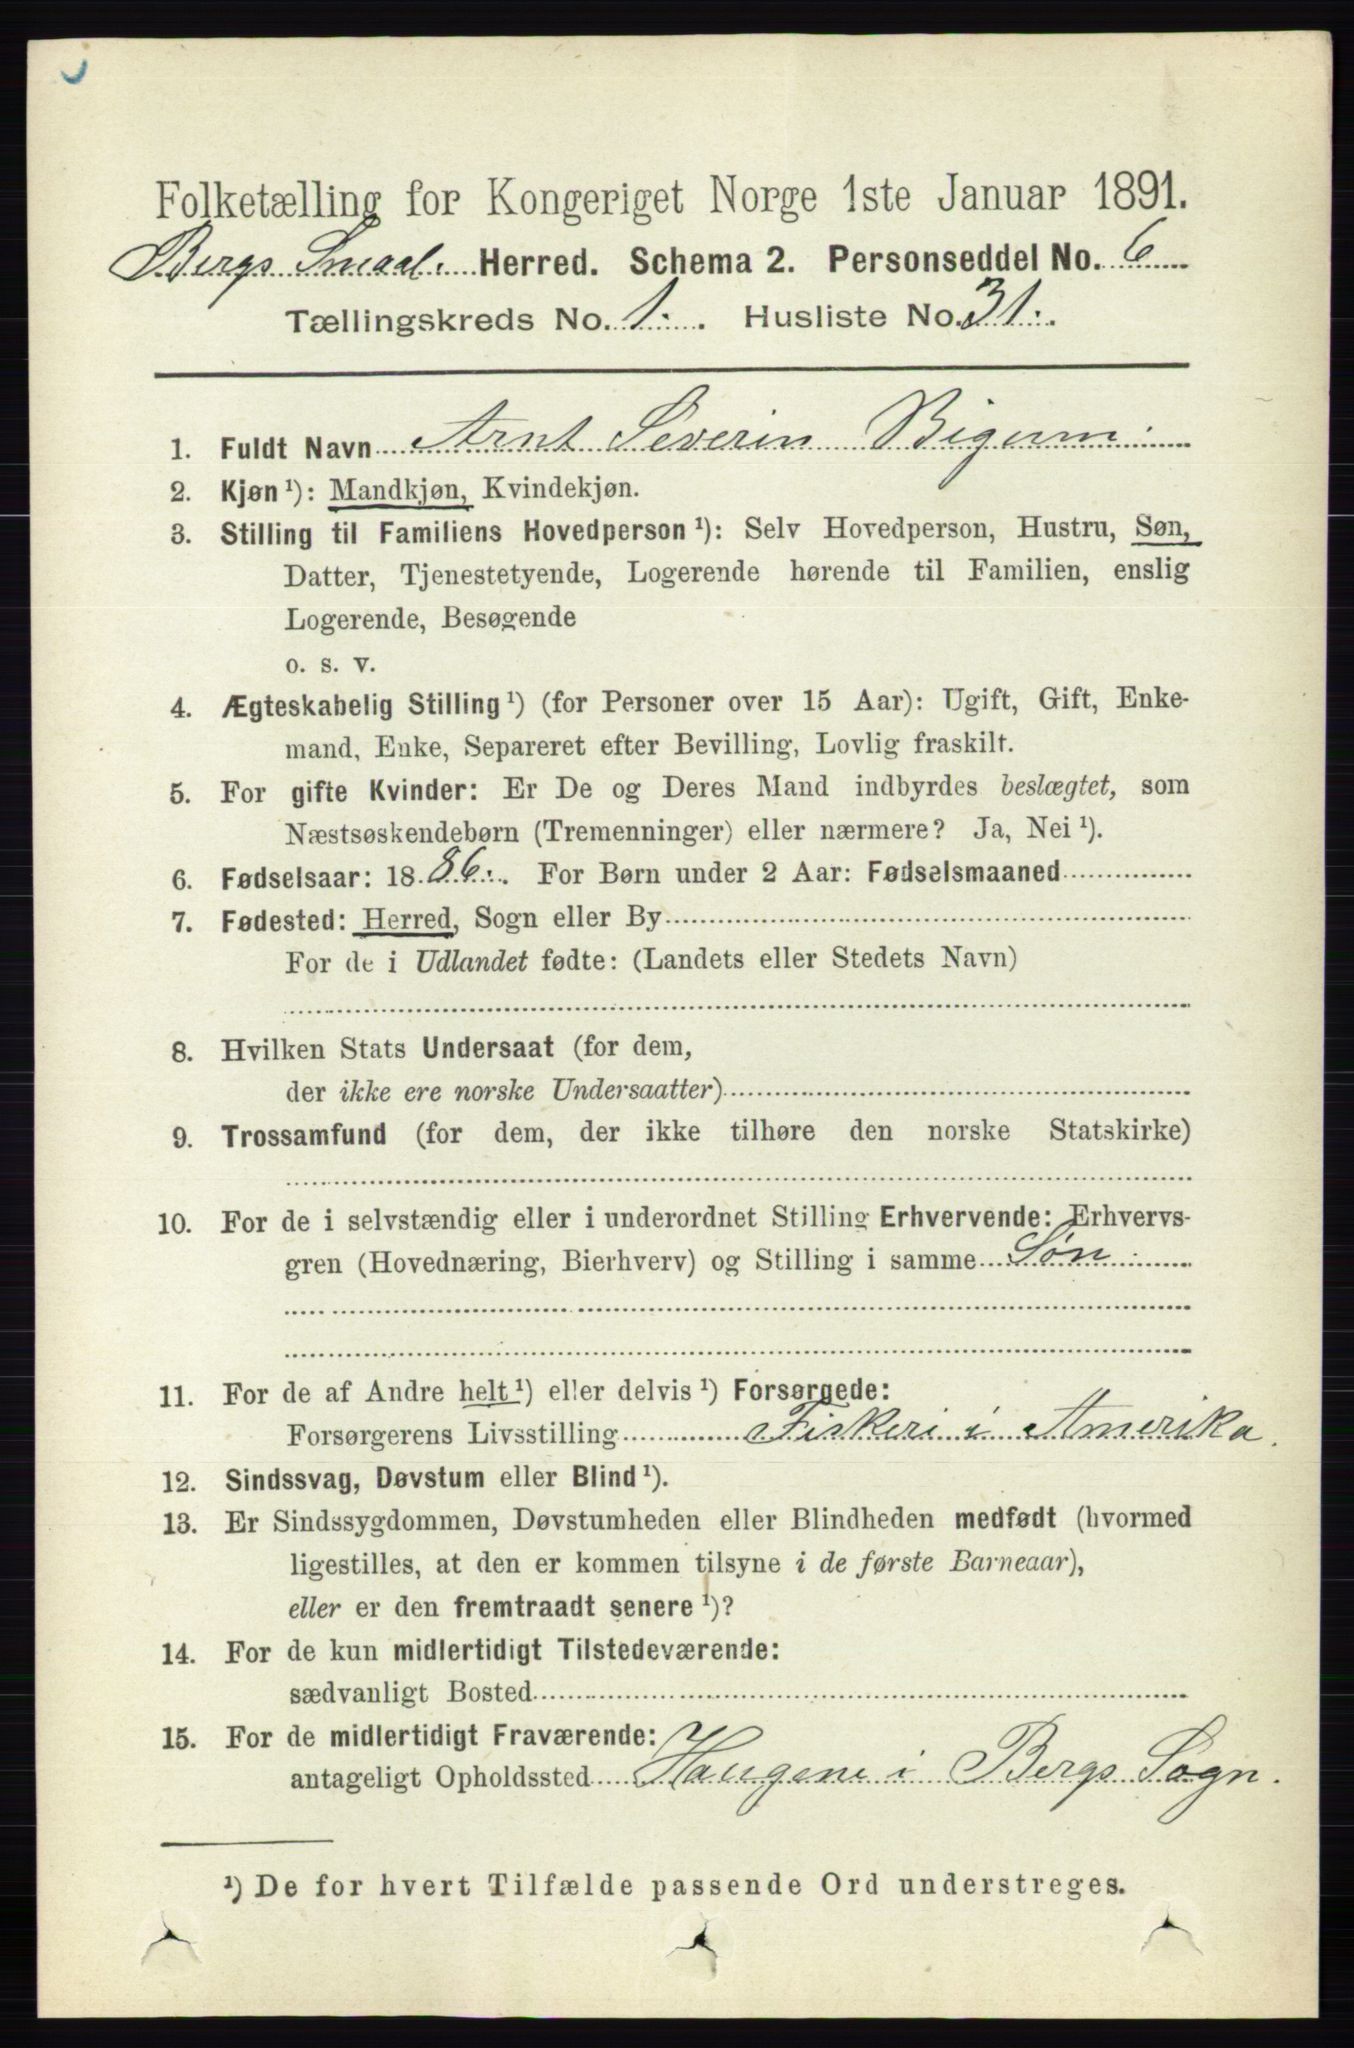 Folketælling for Kongeriget Norge 1ste Januar 1891.
Bergs Smaal. Herred. Schema 2. Personseddel No. 6
Tællingskreds No. 1. Husliste No. 31.
1. Fuldt Navn Arnt Severin Bigum.
2. Kjøn ¹): Mandkjøn, Kvindekjøn.
3. Stilling til Familiens Hovedperson ¹): Selv Hovedperson, Hustru, Søn,
Datter, Tjenestetyende, Logerende hørende til Familien, enslig
Logerende, Besøgende
o. s. v.
4. Ægteskabelig Stilling ¹) (for Personer over 15 Aar): Ugift, Gift, Enke-
mand, Enke, Separeret efter Bevilling, Lovlig fraskilt.
5. For gifte Kvinder: Er De og Deres Mand indbyrdes beslægtet, som
Næstsøskendebørn (Tremenninger) eller nærmere? Ja, Nei ¹).
6. Fødselsaar: 1886. For Børn under 2 Aar: Fødselsmaaned
7. Fødested: Herred, Sogn eller By
For de i Udlandet fødte: (Landets eller Stedets Navn)
8. Hvilken Stats Undersaat (for dem,
der ikke ere norske Undersaatter)
9. Trossamfund (for dem, der ikke tilhøre den norske Statskirke)
10. For de i selvstændig eller i underordnet Stilling Erhvervende: Erhvervs-
gren (Hovednæring, Bierhverv) og Stilling i samme Søn.
11. For de af Andre helt ¹) eller delvis ¹) Forsørgede:
Forsørgerens Livsstilling Fiskeri i Amerika.
12. Sindssvag, Døvstum eller Blind ¹).
13. Er Sindssygdommen, Døvstumheden eller Blindheden medfødt (hvormed
ligestilles, at den er kommen tilsyne i de første Barneaar),
eller er den fremtraadt senere ¹)?
14. For de kun midlertidigt Tilstedeværende:
sædvanligt Bosted
15. For de midlertidigt Fraværende:
antageligt Opholdssted Haugene i Bergs Sogn.
¹) De for hvert Tilfælde passende Ord understreges.